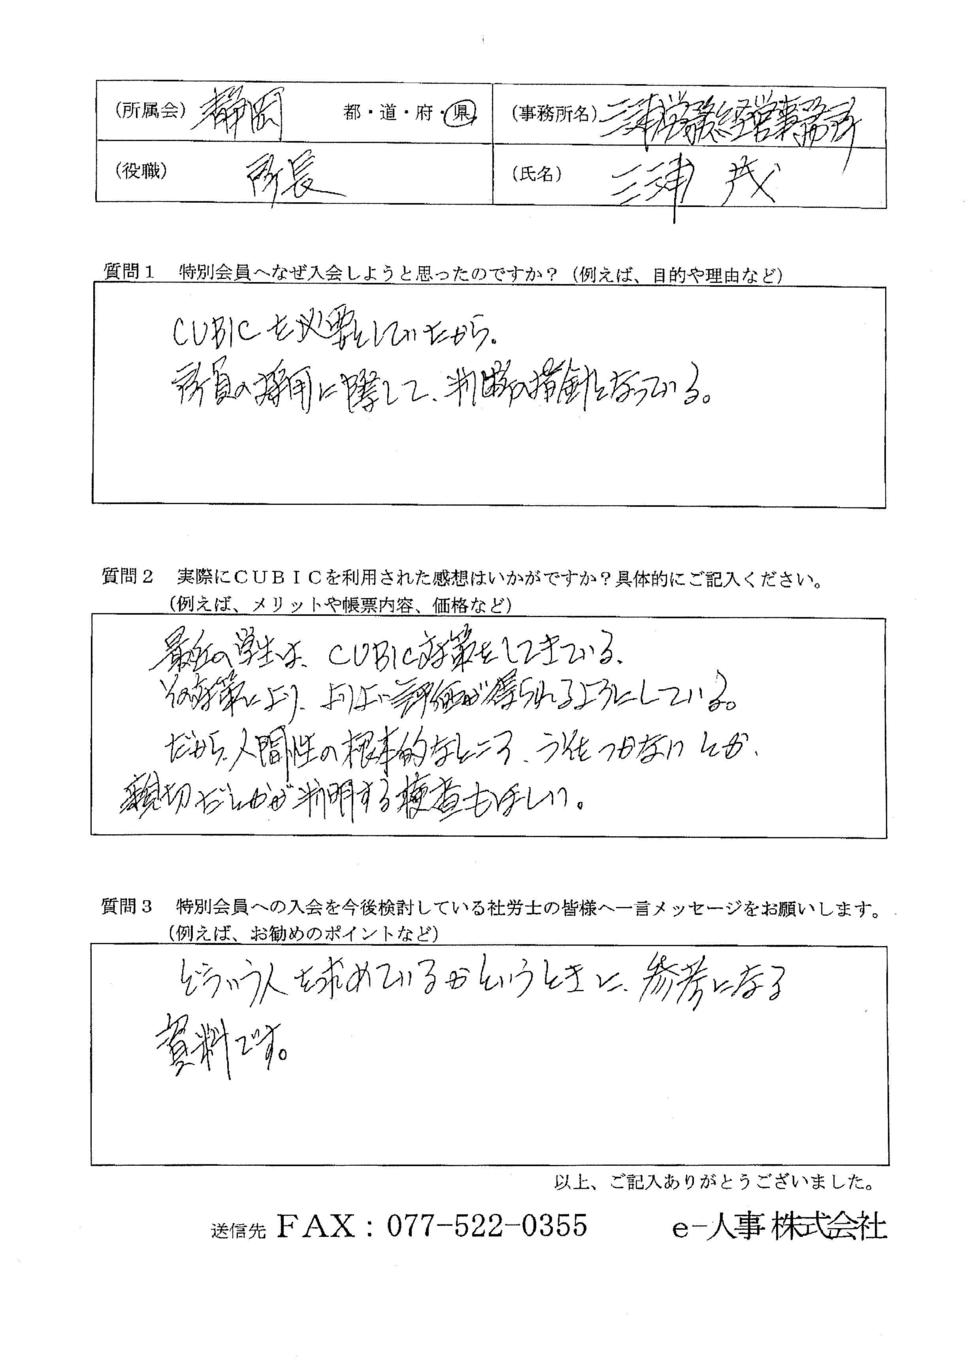 (所属会) 静岡 都・道・府・県 (事務所名) 三浦労務経営事務所
(役職) 所長 (氏名) 三浦 茂
質問1 特別会員へなぜ入会しようと思ったのですか?(例えば、目的や理由など)
CUBICを必要としていたから。
所員の採用に際して、判断の指針となっている。
質問2 実際にCUBICを利用された感想はいかがですか?具体的にご記入ください。
(例えば、メリットや帳票内容、価格など)
最近の学生は、CUBIC対策をしてきている、
その対策により、よりよい評価が得られるようにしている。
だから、人間性の根本的なところ、うそをつかないとか、
親切だとかが判明する検査もほしい。
質問3 特別会員への入会を今後検討している社労士の皆様へ一言メッセージをお願いします。
(例えば、お勧めのポイントなど)
どういう人を求めているかというときに、参考になる
資料です。
以上、ご記入ありがとうございました。
送信先 FAX:077-522-0355 e-人事株式会社